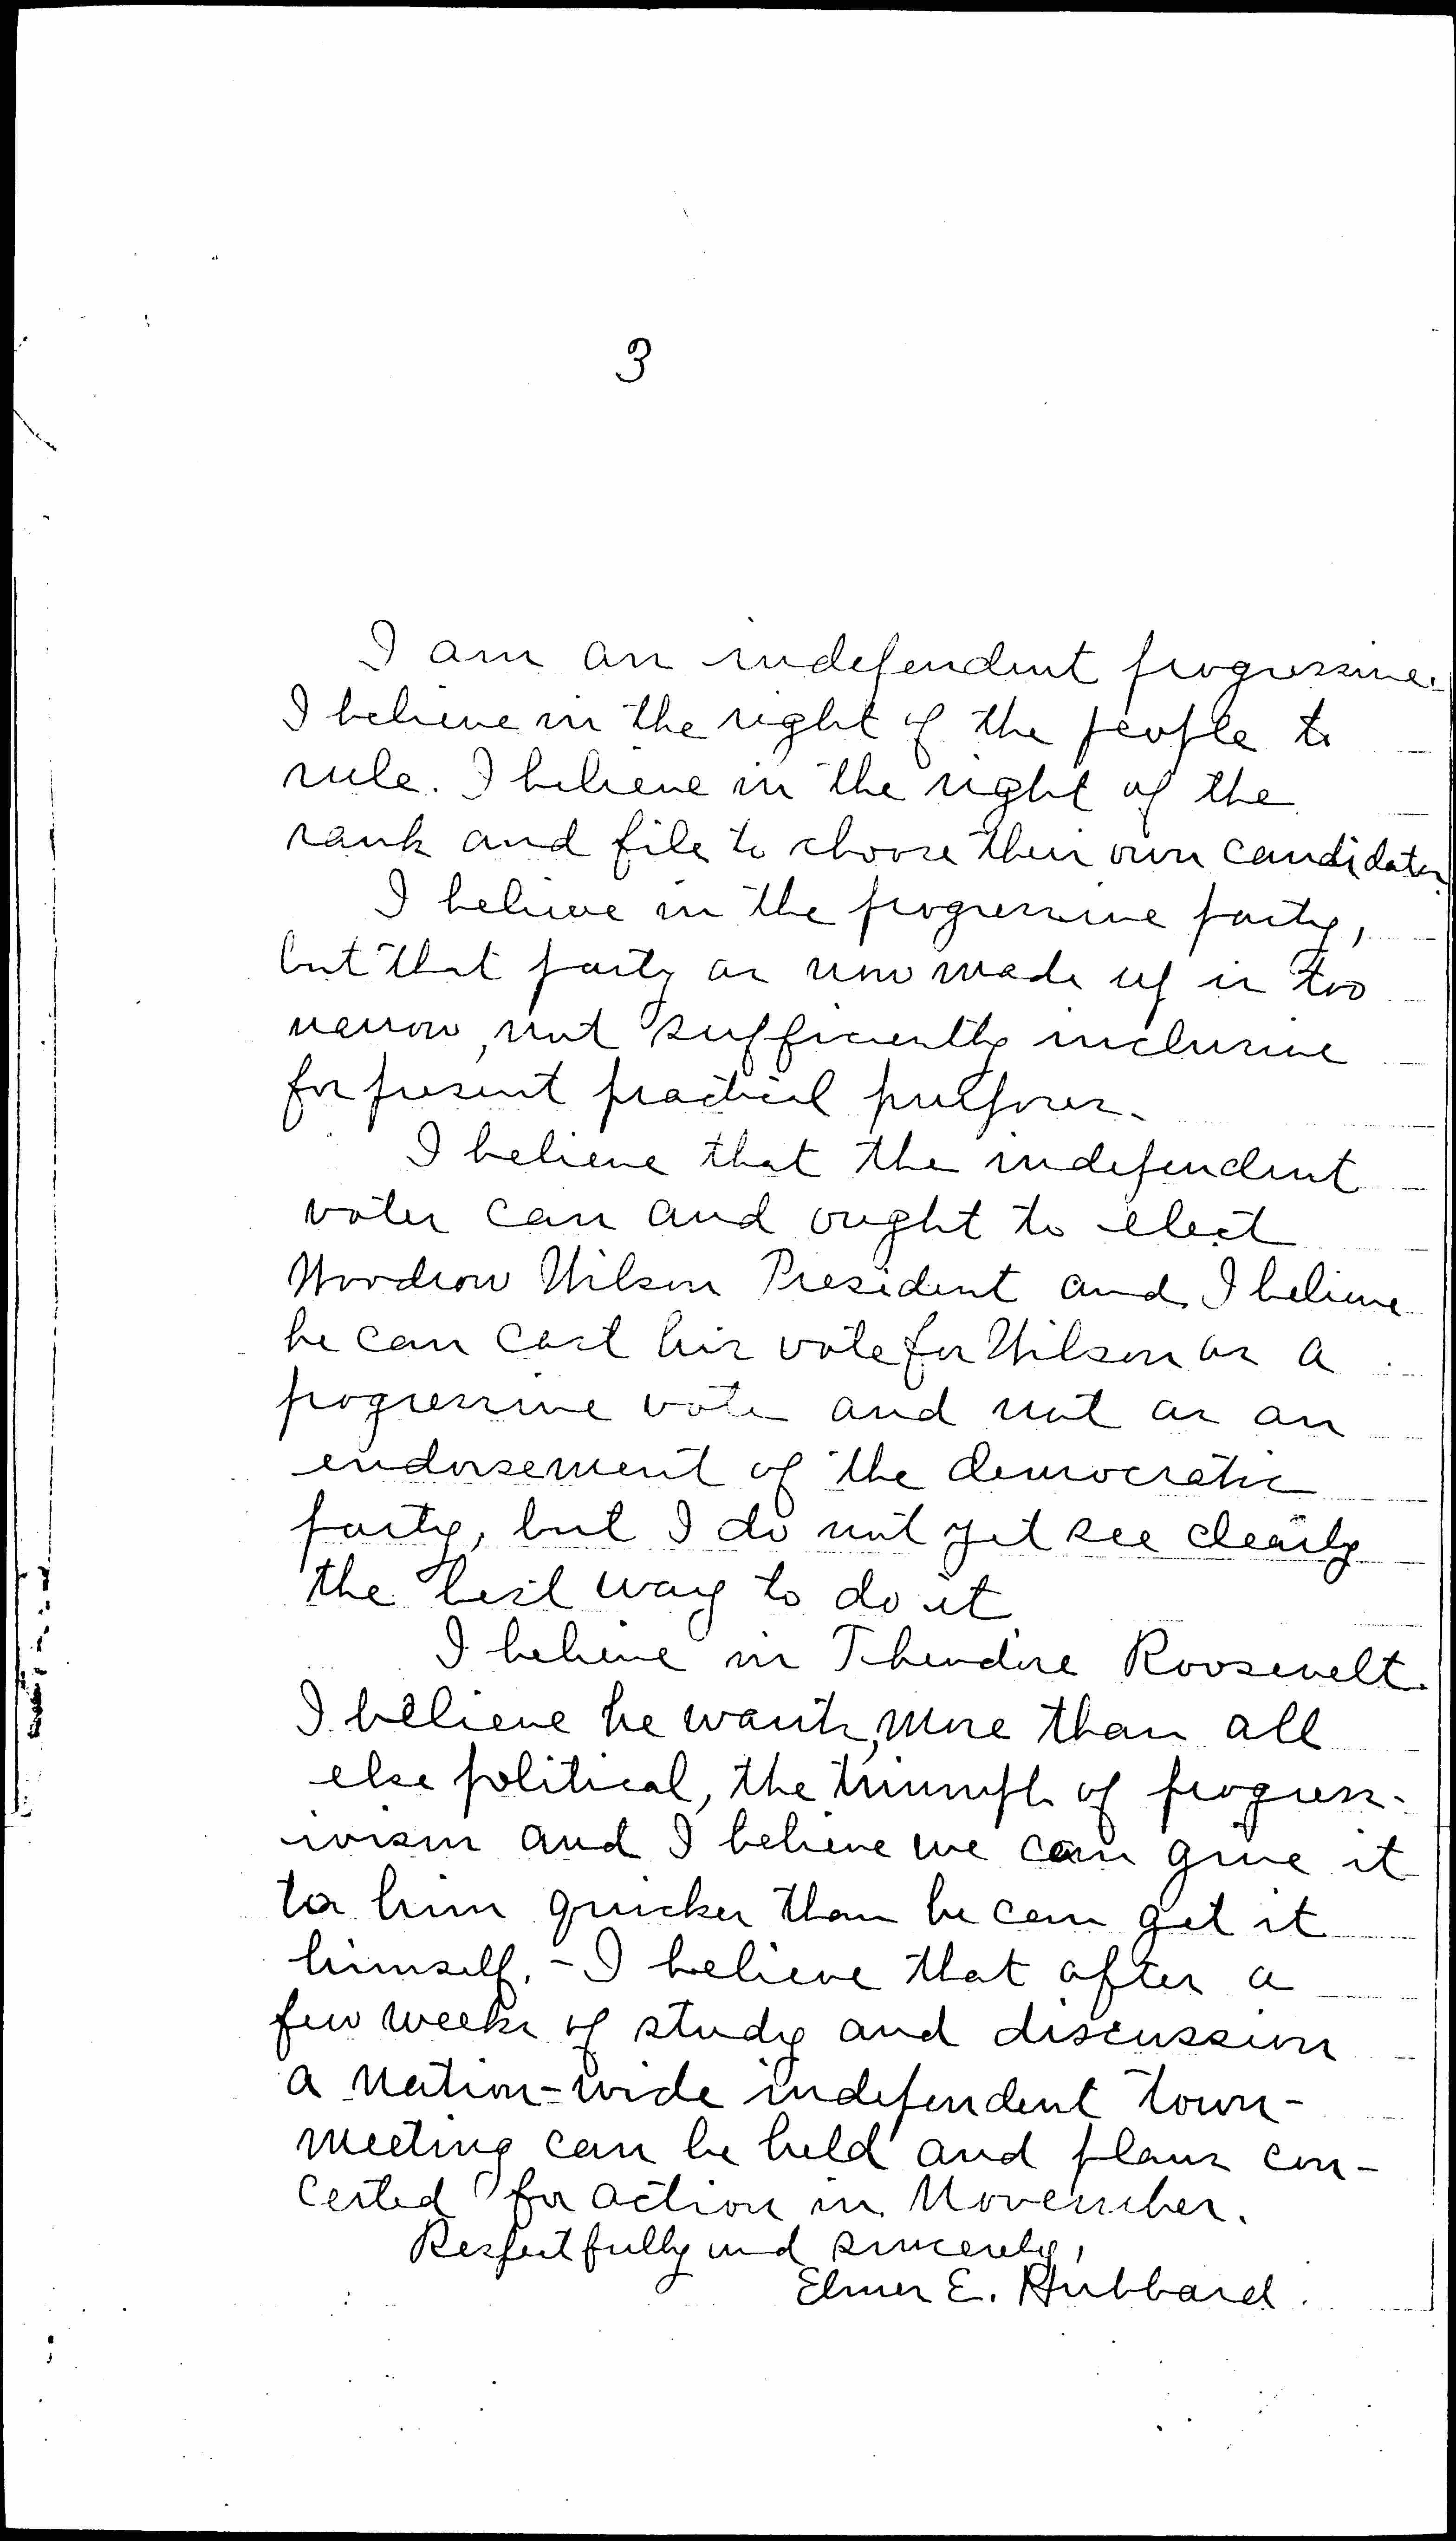 3
I am an independent progressive.
I believe in the right of the people to
rule. I believe in the right of the
rank and file to choose their own candidates.
I believe in the progressive party,
but that party as now made up is too
narrow, not sufficiently inclusive
for present practical purposes.
I believe that the independent
voter can and ought to elect
Woodrow Wilson President and I believe
he can cast his vote for Wilson as a
progressive vote and not as an
endorsement of the democratic
party, but I do not yet see clearly
the best way to do it.
I believe in Theodore Roosevelt.
I believe he wants, more than all
else political, the triumph of progress-
ivism and I believe we can give it
to him quicker than he can get it
himself. - I believe that after a
few weeks of study and discussion
a nation-wide independent town-
meeting can be held and plans con-
certed for action in November.
Respectfully and sincerely,
Elmer E. Hubbard.